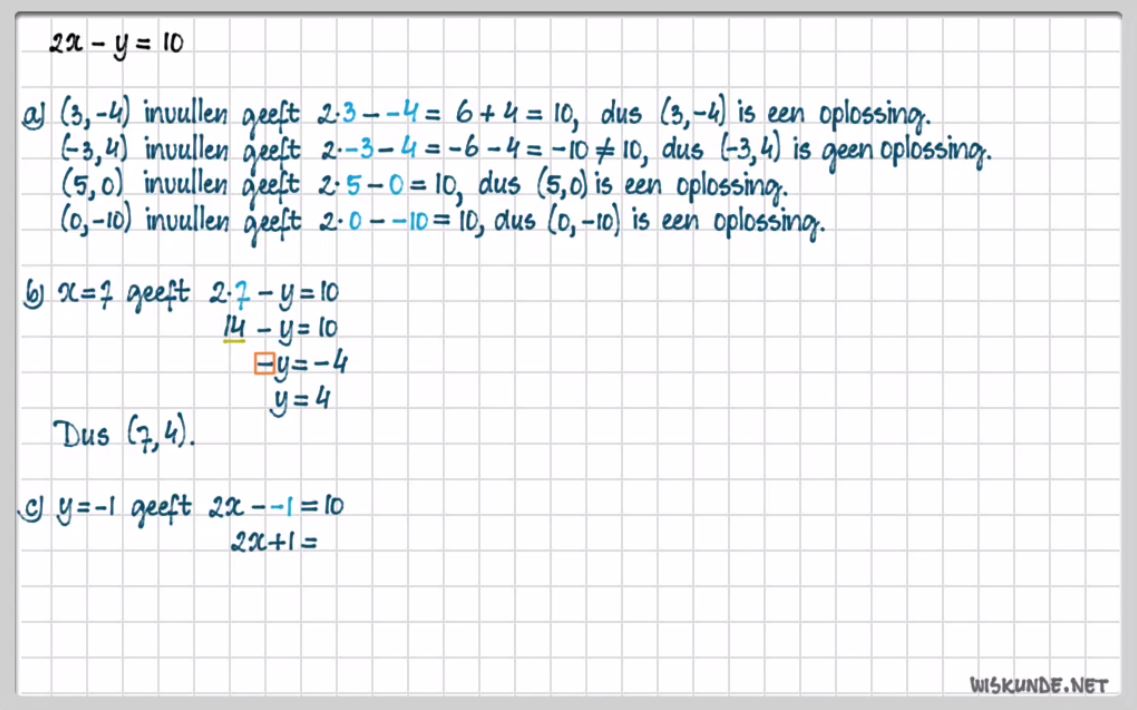 2x - y = 10
a) (3,-4) invullen geeft 2·3 - -4 = 6 + 4 = 10, dus (3,-4) is een oplossing.
(-3,4) invullen geeft 2·-3 - 4 = -6 - 4 = -10 ≠ 10, dus (-3,4) is geen oplossing.
(5,0) invullen geeft 2·5 - 0 = 10, dus (5,0) is een oplossing.
(0,-10) invullen geeft 2·0 - -10 = 10, dus (0,-10) is een oplossing.
b) x=7 geeft 2·7 - y = 10
14 - y = 10
-y = -4
y = 4
Dus (7,4).
c) y=-1 geeft 2x - -1 = 10
2x+1 =
WISKUNDE.NET